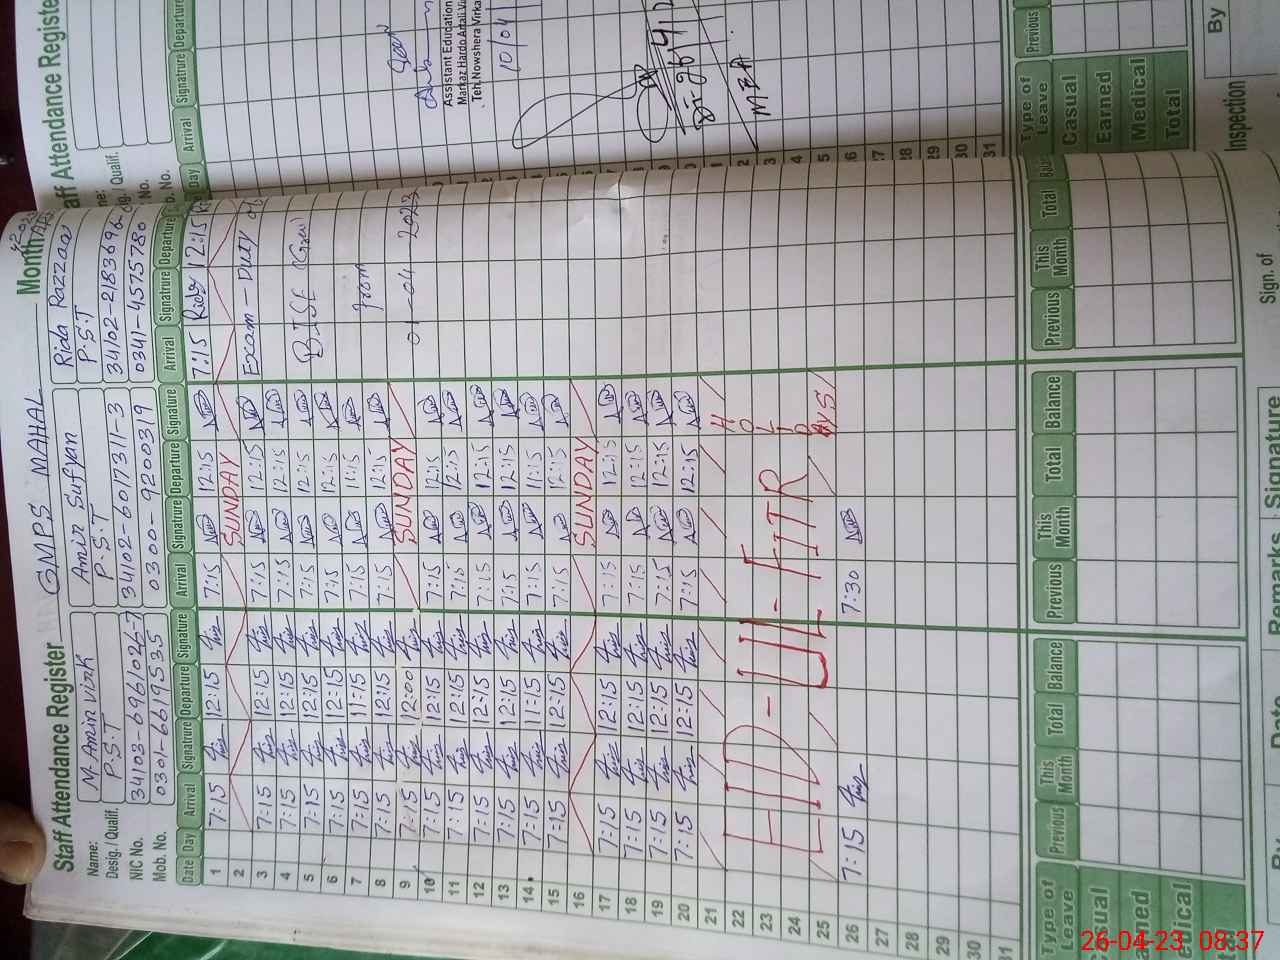 Staff Attendance Register GMPS MAHAL Month
Name: M. Amin virk Amir Sufyan Rida Razzaq
Desig./ Qualif. P.S.T P.S.T P.S.T
NIC No. 34103-6961026-7 34102-6017311-3 34102-2183696-
Mob. No. 0301-6619535 0300-9200319 0341-4575780
Date Day Arrival Signature Departure Signature Arrival Signature Departure Signature Arrival Signature Departure
1 7:15 12:15 7:15 12:15 7:15 Rida 12:15
2 SUNDAY
3 7:15 12:15 7:15 12:15 Exam - Duty
4 7:15 12:15 7:15 12:15
5 7:15 12:15 7:15 12:15 BISE
6 7:15 12:15 7:15 12:15
7 7:15 11:15 7:15 11:15 from
8 7:15 12:15 7:15 12:15
9 7:15 12:00 SUNDAY 01-04-2023
10 7:15 12:15 7:15 12:15
11 7:15 12:15 7:15 12:15
12 7:15 12:15 7:15 12:15
13 7:15 12:15 7:15 12:15
14 7:15 11:15 7:15 11:15
15 7:15 12:15 7:15 12:15
16 SUNDAY
17 7:15 12:15 7:15 12:15
18 7:15 12:15 7:15 12:15
19 7:15 12:15 7:15 12:15
20 7:15 12:15 7:15 12:15
21
22
23 EID-UL-FITR HOLIDAYS
24
25
26 7:15 7:30
27
28
29
30
31
Type of Leave Previous This Month Total Balance Previous This Month Total Balance Previous This Month Total
Casual
Earned
Medical
Total
Staff Attendance Register
Day Arrival Signature Departure
Seen
Assistant Education
Markaz Hardo Artali Vi
Teh. Nowshera Virka
10/04
MEA
28
29
30
31
Type of Leave Previous
Casual
Earned
Medical
Total
Inspection
By
Sign. of
Signature
Remarks
Date
By
26-04-23 08:37